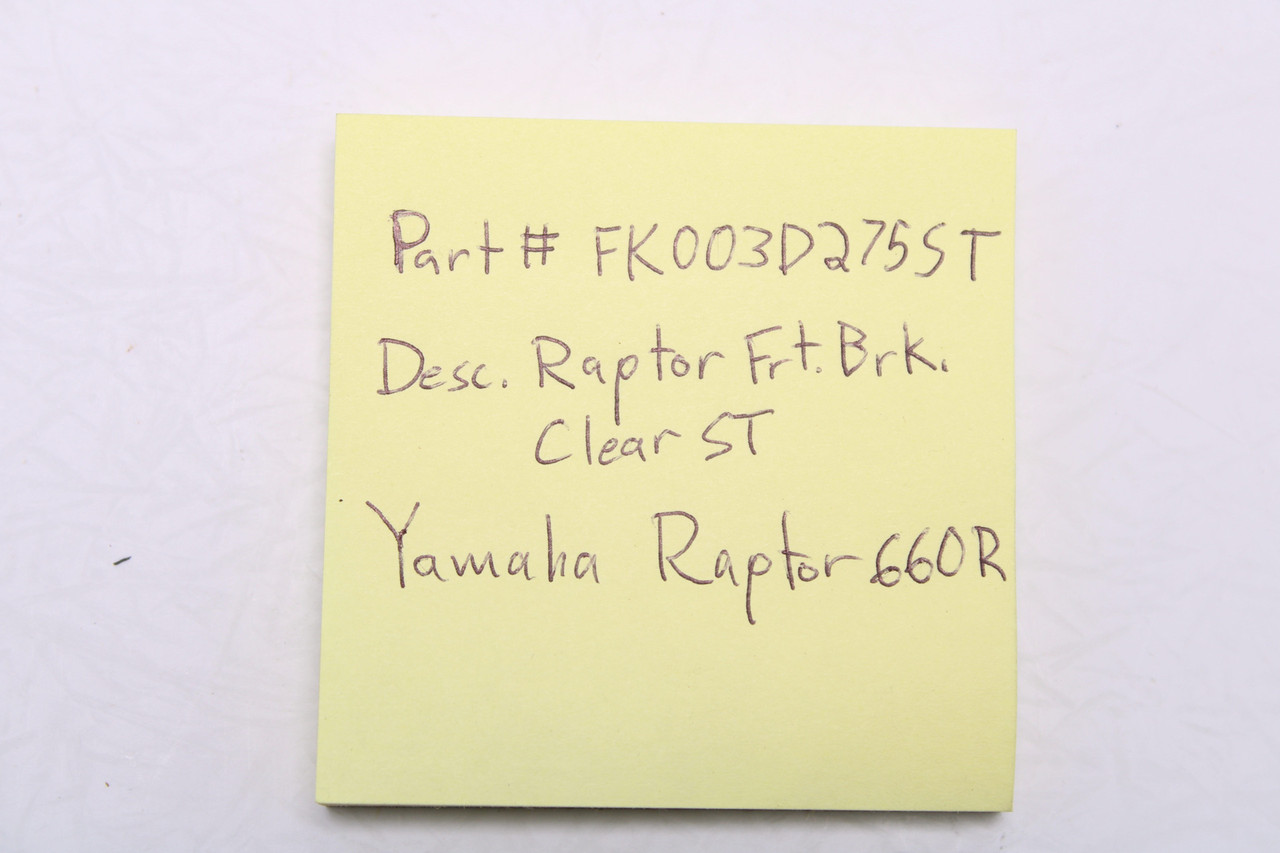 Part # FK003D275ST
Desc. Raptor Frt. Brk.
Clear ST
Yamaha Raptor 660R